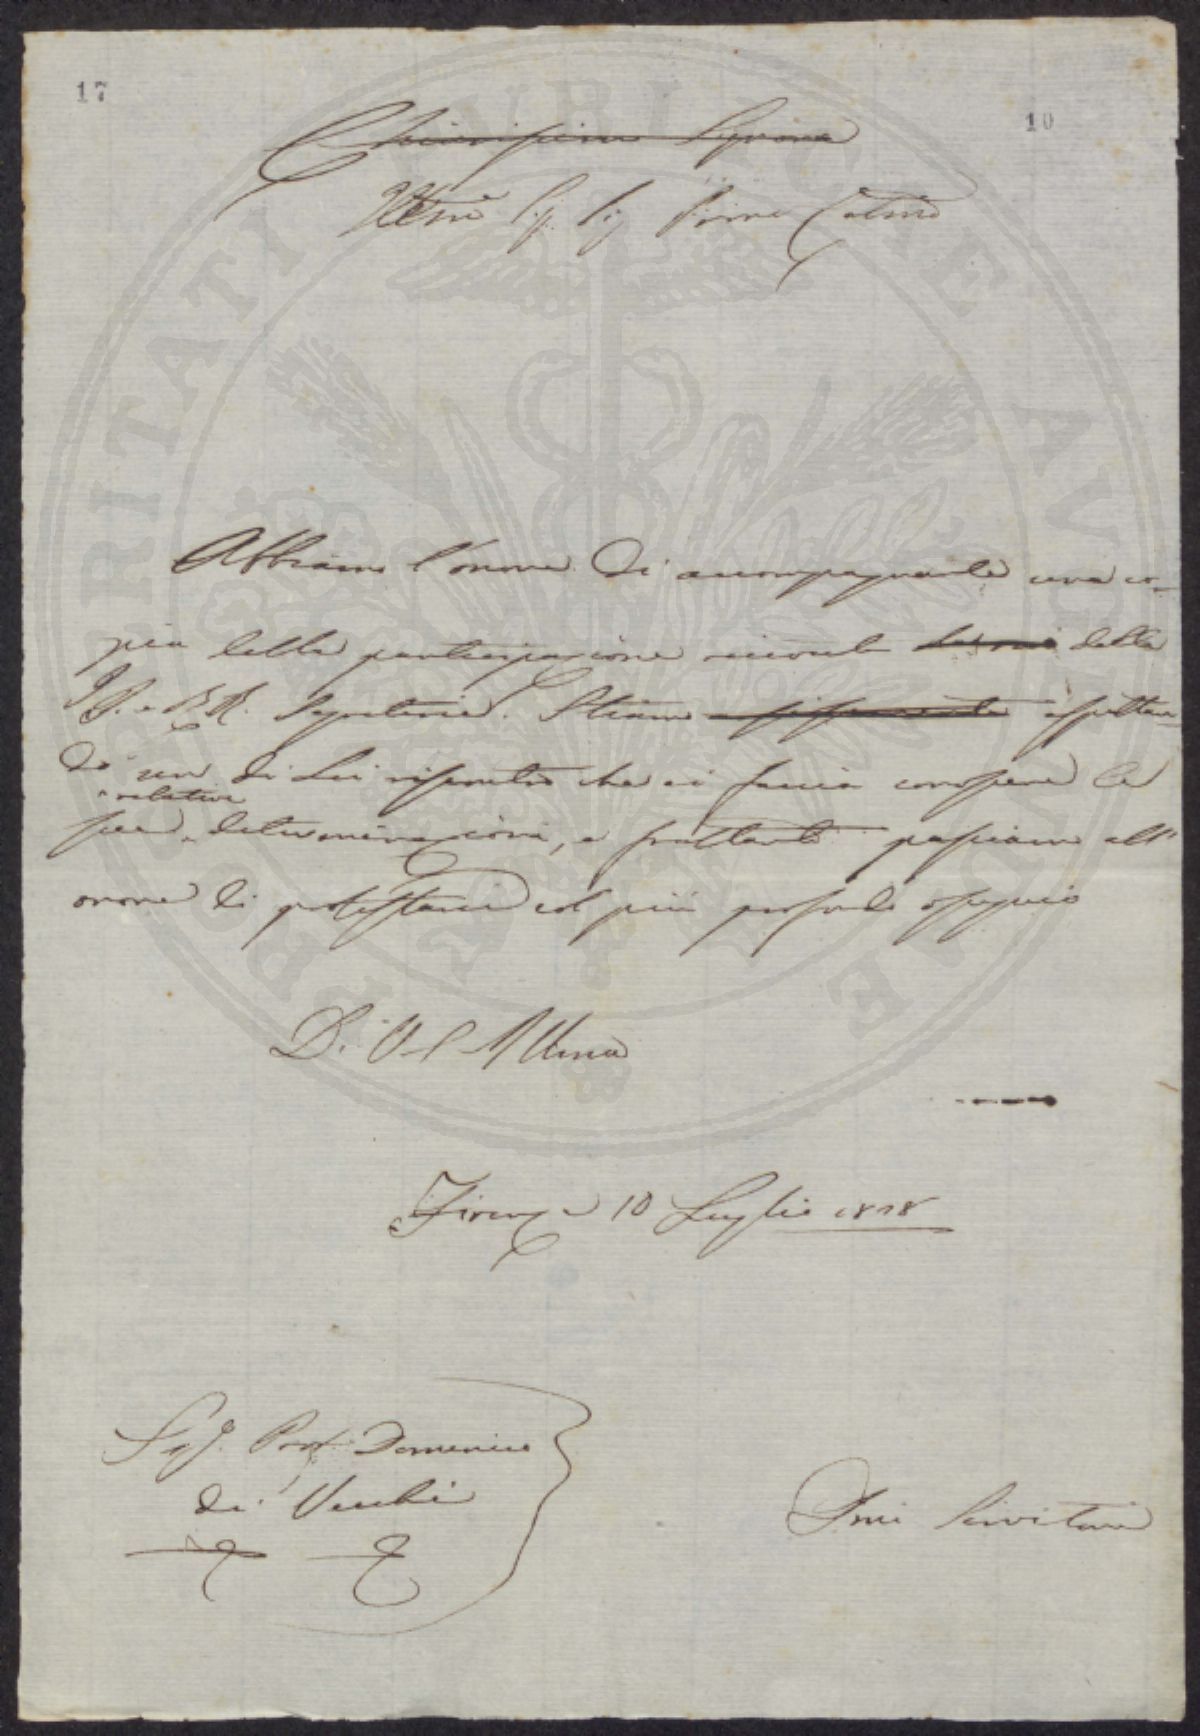 17
10
Chiarissimo Signore
Illmo Sig. Sig. Prone Colmo
Abbiamo l'onore di accompagnarle una co-
pia della partecipazione ricevuta della
I. e R. Segreteria. Stiamo aspettan-
do un di Lei riscontro che ci faccia conoscere le
relative
sue determinazioni, e frattanto passiamo all'
onore di protestarci col più profondo ossequio
D. V. S. Illma
Firenze 10 Luglio 1828
Sig. Prof. Domenico
de' Vecchi
Dmi Servitori
PROSPERITATI PUBLICAE AUGENDAE